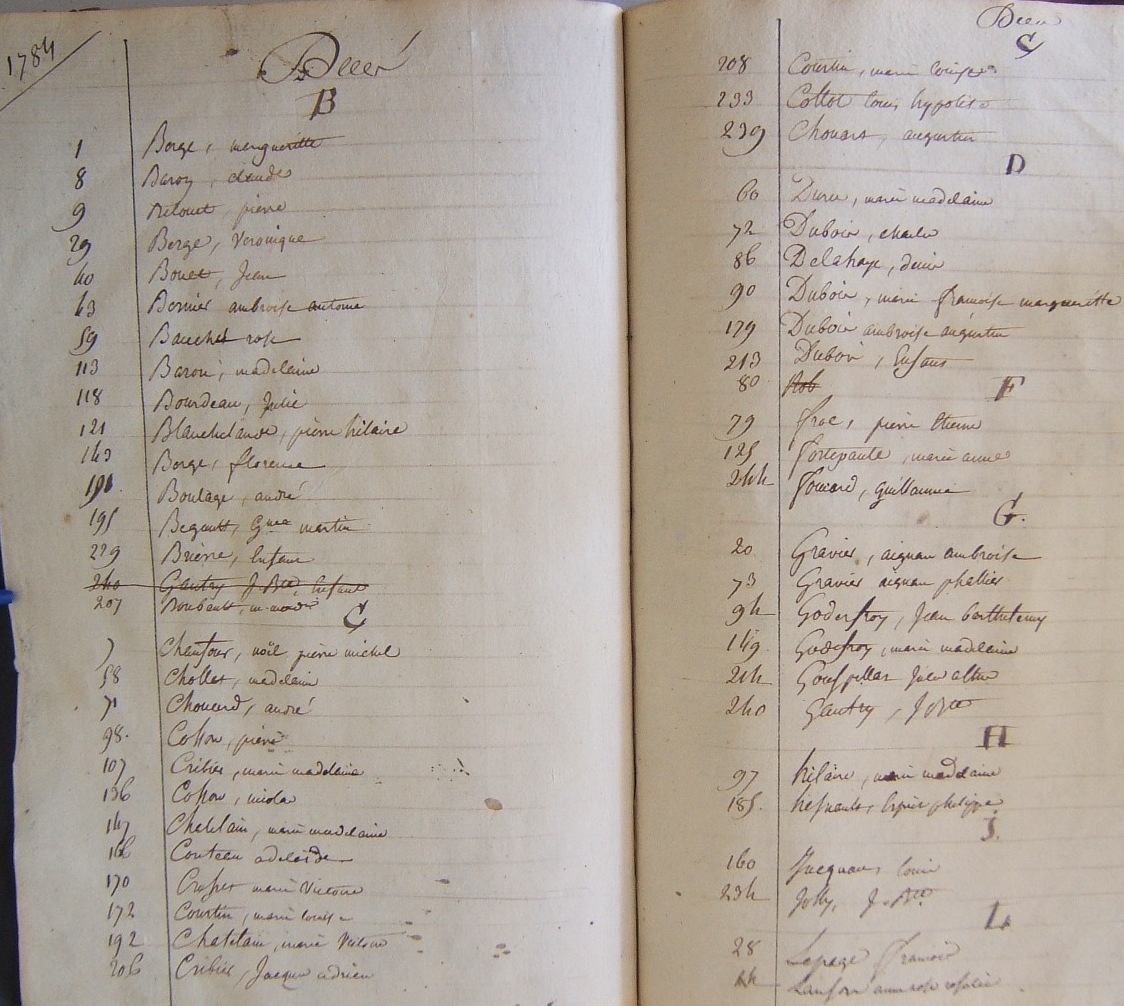 1784
Décès
B
1 Borge, margueritte
8 Baron, claude
9 pierre
29 Berge, Veronique
40 Bouet, Jean
43 Bernier ambroise antoine
59 Bauchet rose
113 Baron, madelaine
118 Bourdeau, Julie
121 Blanchelande, pierre hilaire
143 Berge, florence
191 Boulage, andré
195 Begault, martin
229 Brierre, Enfant
240 Gautry J. Bte, Enfant
207
C
7 noël pierre michel
58 Chollet, madelaine
71 Chouard, andré
98. Cosson, pierre
107 Cribier, marie madelaine
136 Cosson, nicolas
147 Chatelain, marie madelaine
166 Couteau adelaïde
170 marie Victoire
172 Courtin, marie louise
192 Chatelain, marie
206 Cribier, Jacque adrien
Décès
C
208 Courtin, marie louise
233 Cottot louis hypolite
239 Chouart, augustin
D
60 Duru, marie madelaine
72 Dubois, charles
86 Delahaye, denis
90 Dubois, marie françoise margueritte
179 Dubois ambroise augustin
213 Dubois, Enfant
80
F
79 froc, pierre Etienne
125 fortepaule, marie anne
244 Guillaume
G.
20 Gravier, aignan ambroise
73 Gravier aignan
94 Godefroy, Jean barthelemy
149 Godefroy, marie madelaine
214
240 Gautry, J. Bte
H
97 hilaire, marie madelaine
185. philippe
J.
160 Jacquau, louis
234 Jolly, J. Bte
L.
28 Lepage françois
44 anne rose rosalie